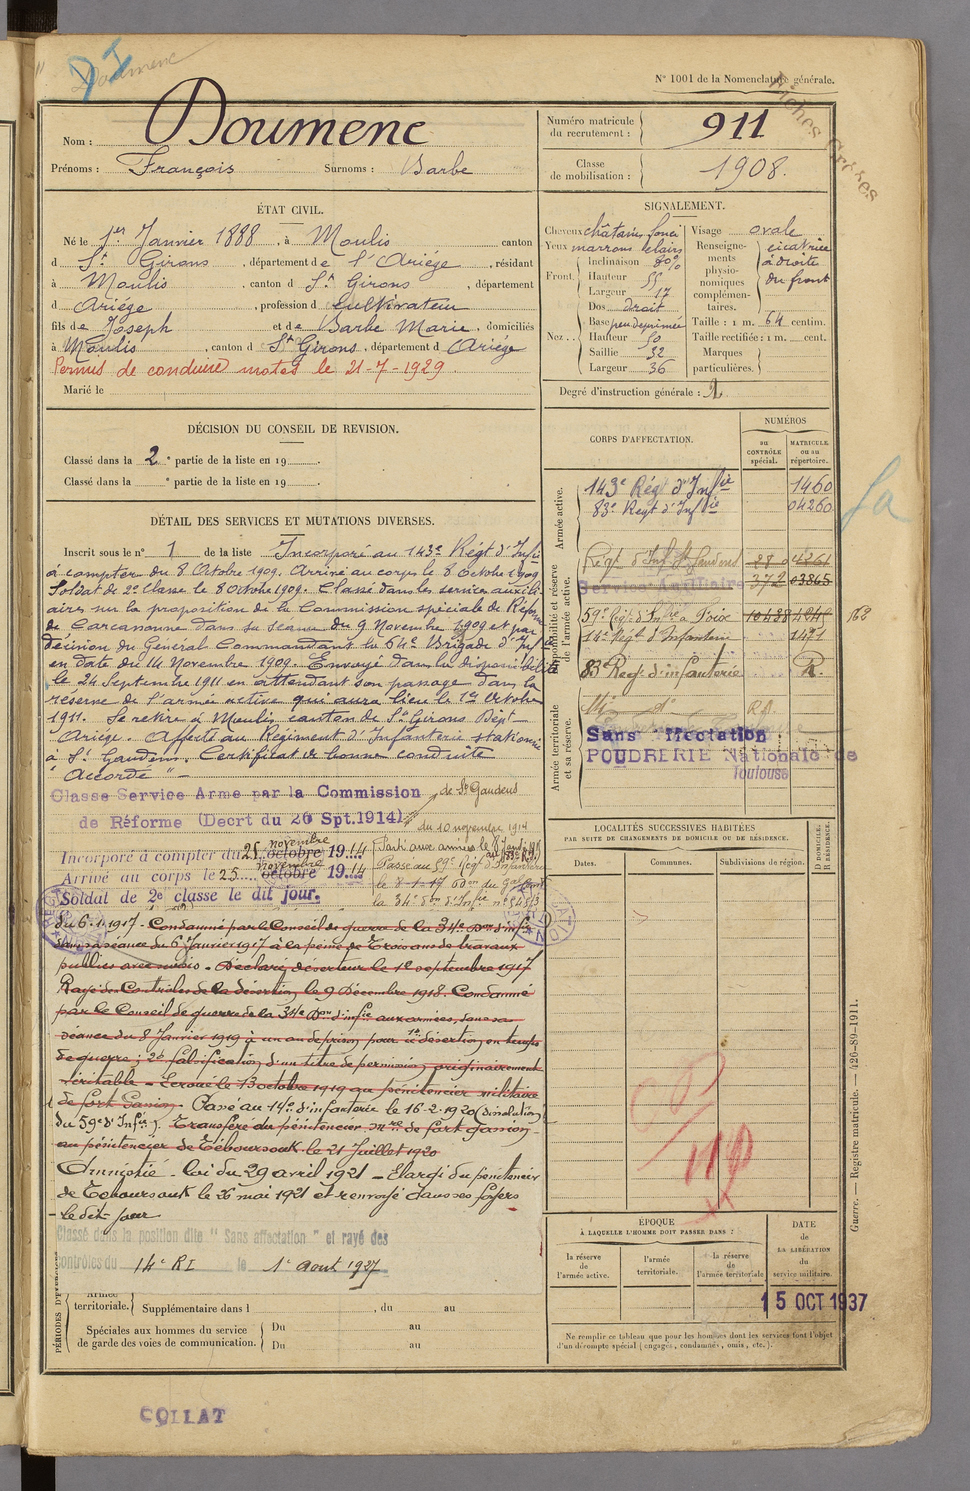 DI
Doumenc
N° 1001 de la Nomenclature générale.
Fiches Créées
Nom : Doumenc
Prénoms : François Surnoms : Barbe
Numéro matricule du recrutement : 911
Classe de mobilisation : 1908.
ÉTAT CIVIL.
Né le 1er Janvier 1888, à Moulis canton
d St Girons, département de l'Ariége, résidant
à Moulis, canton d St Girons, département
d Ariége, profession d Cultivateur
fils de Joseph et de Barbe Marie, domiciliés
à Moulis, canton d St Girons, département d Ariége
Permis de conduire motos le 21-7-1929
Marié le
SIGNALEMENT.
Cheveux châtains foncé
Yeux marrons clairs
Front. Inclinaison
Hauteur 55
Largeur 17
Nez... Dos droit
Base peu déprimée
Hauteur 50
Saillie 32
Largeur 36
Visage ovale
Renseignements physionomiques complémentaires. cicatrice à droite du front
Taille : 1 m. 64 centim.
Taille rectifiée : 1 m. cent.
Marques particulières.
Degré d'instruction générale : 2
DÉCISION DU CONSEIL DE REVISION.
Classé dans la 2e partie de la liste en 19 .
Classé dans la e partie de la liste en 19 .
DÉTAIL DES SERVICES ET MUTATIONS DIVERSES.
Inscrit sous le n° 1 de la liste Incorporé au 143e Régt d'Infie
à compter du 8 Octobre 1909. Arrivé au corps le 8 Octobre 1909
Soldat de 2e Classe le 8 Octobre 1909. Classé dans les services auxili-
aires sur la proposition de la Commission spéciale de Réforme
de Carcassonne dans sa séance du 9 Novembre 1909 et par
décision du Général Commandant la 64e Brigade d'Infie
en date du 14 Novembre 1909. Envoyé dans la disponibilité
le 24 Septembre 1911 en attendant son passage dans la
réserve de l'armée active qui aura lieu le 1er Octobre
1911. Se retire à Moulis canton de St Girons Dépt
Ariége. Affecté au Régiment d'Infanterie stationné
à St Gaudens. Certificat de bonne conduite
"Accordé" -
Classe Service Arme par la Commission de St Gaudens
de Réforme (Decrt du 26 Spt.1914) du 10 novembre 1914
Incorporé à compter du 25 octobre novembre 1914
Arrivé au corps le 25 octobre novembre 1914
Soldat de 2e classe le dit jour.
Parti aux armées le 8
Passé au 59e Régt d'Infanterie
le 8-1-17
la 34e don d'Infie n° 5453
du 6-1-1917 - Condamné par le Conseil de guerre de la 34e Don d'Infie
dans sa séance du 6 Janvier 1917 à la peine de Trois ans de travaux
publics avec sursis - Déclaré déserteur le 1e septembre 1917
Rayé des Contrôles de la désertion le 9 Décembre 1918. Condamné
par le Conseil de guerre de la 34e Don d'infie aux armées, dans sa
séance du 8 Janvier 1919 à un an de prison pour 1° désertion en temps
de guerre ; 2° falsification d'un titre de permission originairement
véritable - Ecroué le 13 octobre 1919 au pénitencier militaire
de fort Gassion. Passé au 14e d'infanterie le 16-2-1920 (dissolution
du 59e d'Infie). Transféré du pénitencier mre de fort Gassion
au pénitencier de Téboursouk le 21 Juillet 1920
Amnistié - loi du 29 avril 1921 - Elargi du pénitencier
de Téboursouk le 26 mai 1921 et renvoyé dans ses foyers
- le dit jour
Classé dans la position dite "Sans affectation" et rayé des
contrôles du 14e RI le 1e Aout 1927
PÉRIODES
Armée territoriale. Supplémentaire dans l , du au
Spéciales aux hommes du service de garde des voies de communication. Du au
Du au
CORPS D'AFFECTATION.
NUMÉROS
au CONTRÔLE spécial.
MATRICULE ou au répertoire.
Armée active.
143e Régt d'Infie 1460
83e Régt d'Infie 04260
Disponibilité et réserve de l'armée active.
Régt d'Inf St Gaudens 28 0 4261
Service Auxiliaire 372 03865
59e Régt d'Infie à Foix 10488 4245 162
14e Régt d'Infanterie 1471
83e Regt d'infanterie R.
Armée territoriale et sa réserve.
Mis do R.A.
Sans Affectation
POUDRERIE Nationale de
Toulouse
fa
LOCALITÉS SUCCESSIVES HABITÉES
PAR SUITE DE CHANGEMENTS DE DOMICILE OU DE RÉSIDENCE.
Dates.
Communes.
Subdivisions de région.
D DOMICILE.
R RÉSIDENCE.
ÉPOQUE
À LAQUELLE L'HOMME DOIT PASSER DANS :
la réserve de l'armée active.
l'armée territoriale.
la réserve de l'armée territoriale
DATE de LA LIBÉRATION du service militaire.
15 OCT 1937
Ne remplir ce tableau que pour les hommes dont les services font l'objet
d'un décompte spécial (engagés, condamnés, omis, etc.).
Guerre. — Registre matricule. — 426-89-1911.
COLLAT